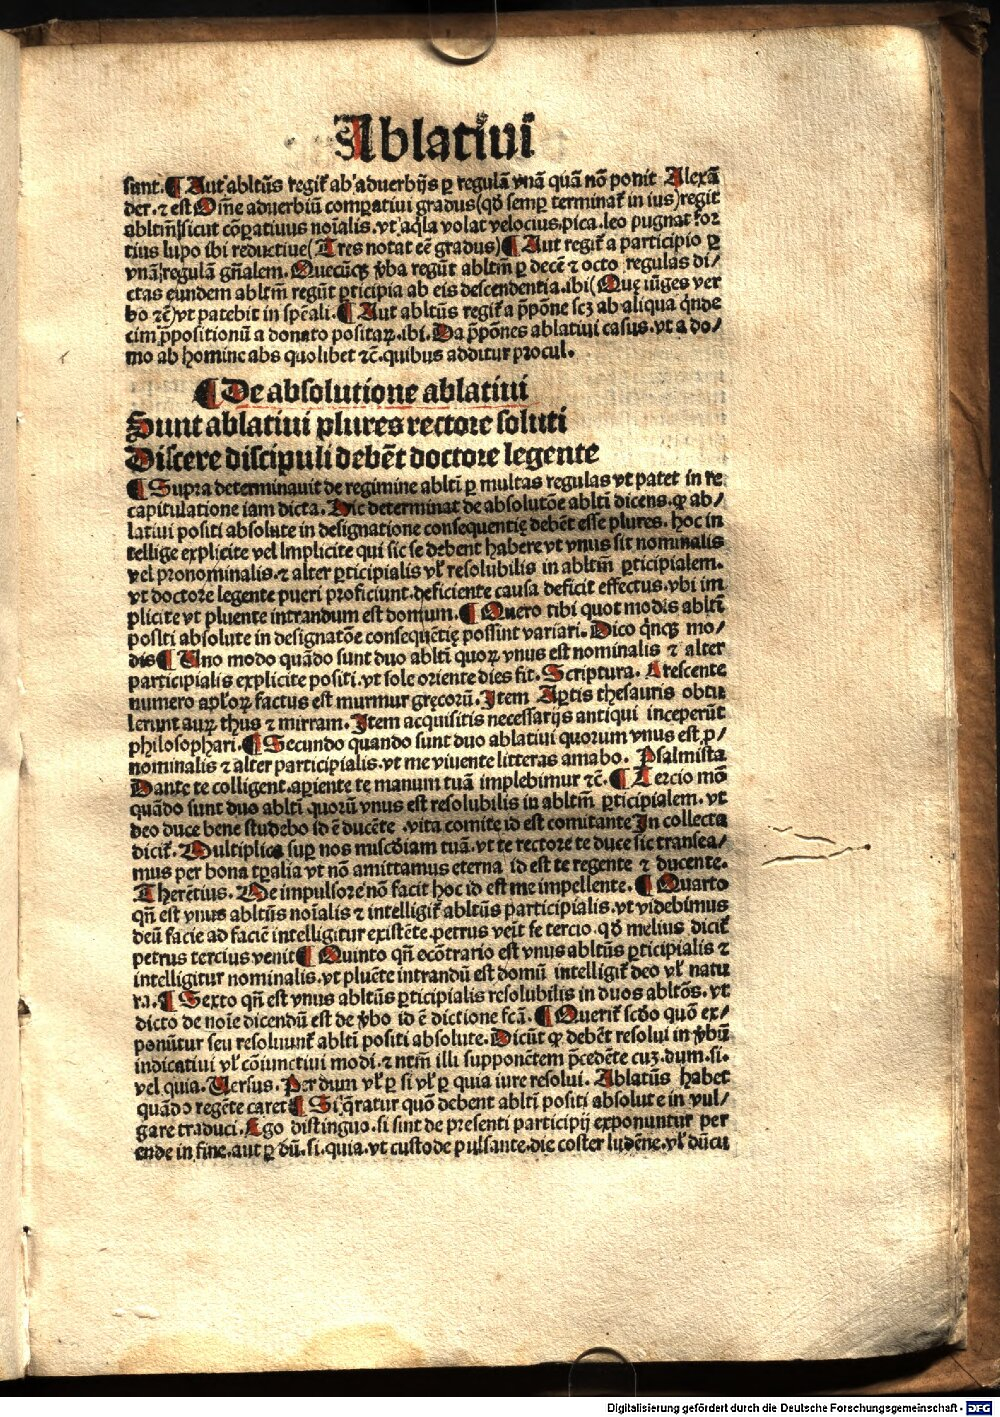 Ablatiui
sunt. ¶ Aut abltūs regit᷑ ab aduerbijs ꝑ regulā vnā quā nō ponit Alexā
der. ⁊ est Om̄e aduerbiū comꝑatiui gradus (qđ semꝑ terminat᷑ in ius) regit
abltm̄ sicut cōꝑatiuus noīalis. vt aq̇la volat velocius pica. leo pugnat for
tius lupo ibi reductiue (Tres notat eē gradus) ¶ Aut regit᷑ a participio ꝑ
vnā regulā gn̄alem. Quecūqꝫ v̄ba regūt abltm̄ ꝑ decē ⁊ octo regulas di/
ctas eundem abltm̄ regūt ꝑticipia ab eis descendentia. ibi (Quę iūges ver
bo ⁊c̄) vt patebit in sp̄eali. ¶ Aut abltūs regit᷑ a p̄pōne scꝫ ab aliqua q̇nde
cim p̄positionū a donato positaꝝ. ibi. Da p̄pōnes ablatiui casus. vt a do/
mo ab homine abs quolibet ⁊c̄. quibus additur procul.
¶ De absolutione ablatiui
Sunt ablatiui plures rectore soluti
Discere discipuli debēt doctore legente
¶ Supra determinauit de regimine ablti ꝑ multas regulas vt patet in re
capitulatione iam dicta. Hic determinat de absolutōe ablti dicens. ꝙ ab/
latiui positi absolute in designatione consequentię debēt esse plures. hoc in
tellige explicite vel implicite qui sic se debent habere vt vnus sit nominalis
vel pronominalis. ⁊ alter ꝑticipialis vl᷑ resolubilis in abltm̄ ꝑticipialem.
vt doctore legente pueri proficiunt. deficiente causa deficit effectus. vbi im
plicite vt pluente intrandum est domum. ¶ Quero tibi quot modis ablti
positi absolute in designatōe consequētię possint variari. Dico q̇nqꝫ mo/
dis ¶ Uno modo quādo sunt duo ablti quoꝝ vnus est nominalis ⁊ alter
participialis explicite positi. vt sole oriente dies fit. Scriptura. Crescente
numero apl᷑oꝝ factus est murmur gręcorū. Item Aꝑtis thesauris obtu
lerunt auꝝ thus ⁊ mirram. Item acquisitis necessarijs antiqui inceperūt
philosophari. ¶ Secundo quando sunt duo ablatiui quorum vnus est p̄/
nominalis ⁊ alter participialis. vt me viuente litteras amabo. Psalmista
Dante te colligent. aꝑiente te manum tuā implebimur ⁊c̄. ¶ Tercio mō
quādo sunt duo ablti quorū vnus est resolubilis in abltm̄ ꝑticipialem. vt
deo duce bene studebo id ē ducēte. vita comite id est comitante In collecta
dicit᷑. Multiplica suꝑ nos mīscđiam tuā. vt te rectore te duce sic transea/
mus per bona tꝑalia vt nō amittamus eterna id est te regente ⁊ ducente.
Therētius. Me impulsore nō facit hoc id est me impellente. ¶ Quarto
qn̄ est vnus abltūs noīalis ⁊ intelligit᷑ abltūs participialis. vt videbimus
deū facie ad faciē intelligitur existēte. petrus veīt se tercio. qđ melius dicit᷑
petrus tercius venit ¶ Quinto qn̄ ecōtrario est vnus abltūs ꝑticipialis ⁊
intelligitur nominalis. vt pluēte intrandū est domū intelligit᷑ deo vl᷑ natu
ra. ¶ Sexto qn̄ est vnus abltūs ꝑticipialis resolubilis in duos abltōs. vt
dicto de noīe dicendū est de v̄bo id ē dictione fcā. ¶ Querit᷑ scđo quō ex/
ponūtur seu resoluunt᷑ ablti positi absolute. Dicūt ꝙ debēt resolui in v̄bū
indicatiui vl᷑ cōiunctiui modi. ⁊ ntm̄ illi supponētem p̄cedēte cuꝫ. dum. si.
vel quia. Uersus. Per dum vl᷑ ꝑ si vl᷑ ꝑ quia iure resolui. Ablatūs habet
quādo regēte caret ¶ Si q̄ratur quō debent ablti positi absolute in vul/
gare traduci. Ego distinguo. si sunt de presenti participij exponuntur per
ende in fine. aut ꝑ dū. si. quia. vt custode pulsante. die coster ludēne. vl᷑ dūcu